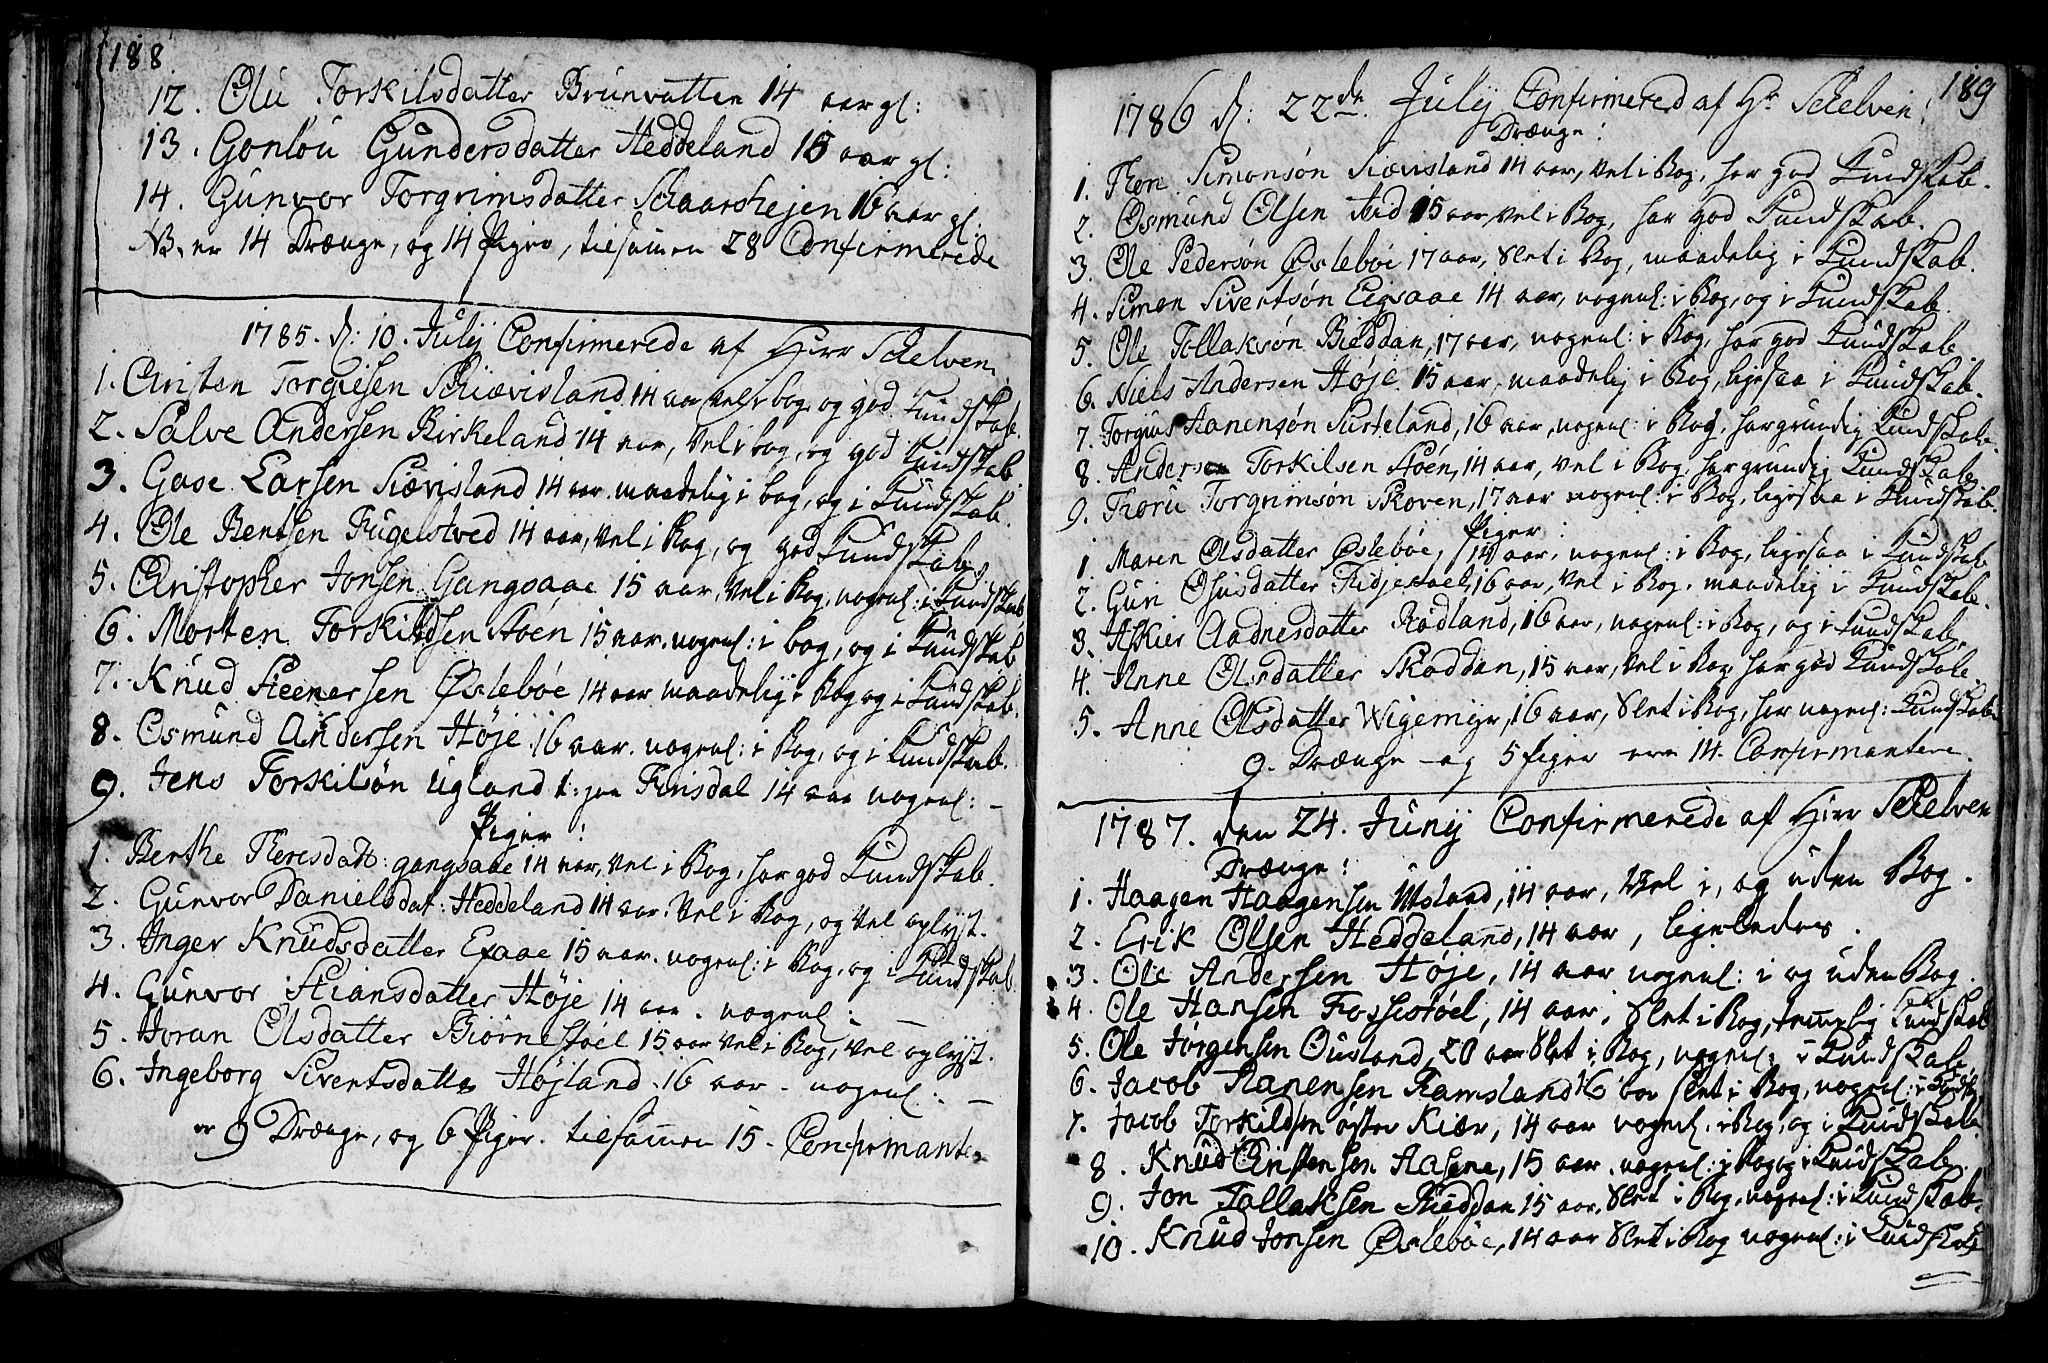 188
12. Olu Torkilsdatter Brunvatten 14 aar gl:
13. Gonlou Gundersdatter Heddeland 16 aar gl:
14. Gunvor Torgrimsdatter Schaarshejen 16 aar gl:
NB. er 14 Drænge, og 14 Piger, tilsamen 28 Confirmerede
1785. d: 10. Julij Confirmerede af Herr Schelven
1. Christen Torgiesen Schiævisland 14 aar Vel i bog og god Kundskab.
2. Salve Andersen Birkeland 14 aar, Vel i bog, og god Kundskab
3. Gase Larsen Siævisland 14 aar. maadelig i bog, og i Kundskab.
4. Ole Bentsen Fugelstved 14 aar, Vel i Bog, og god Kundskab
5. Christopher Jonsen Gangsaae 15 aar, Vel i Bog, nogenl: i Kundskab
6. Morten Torkildsen Støen 15 aar. nogenl: i bog, og i Kundskab
7. Knud Steenersen Øslebøe 14 aar maadelig i Bog og i Kundskab.
8. Osmund Andersen Høje 16 aar. nogenl: i Bog, og i Kundskab.
9. Jens Torkilsøn Ugland t: paa Finsdal 14 aar nogenl: –
Piger:
1. Berthe Theresdatt: gangsaae 14 aar, Vel i Bog, har god Kundskab.
2. Gunvor Danielsdat: Heddeland 14 aar. Vel i Bog, og Vel oplyst.
3. Inger Knudsdatter Exaae 15 aar. nogenl: i Bog, og i Kundskab.
4. Gunvor Stiansdatter Høje 14 aar. nogenl: –
5. Joran Olsdatter Biørnestøel 15 aar Vel i Bog, Vel oplyst.
6. Ingeborg Sivertsdatter Højland 16 aar. nogenl. –
er 9 Drænge, og 6 Piger. tilsamen 15. Confirmanter
189
1786 d: 22de Julij Confirmered af Hr Schelven.
Drænge:
1. Thor Simonsøn Siævisland 14 aar, Vel i Bog, har god Kundskab.
2. Osmund Olsen ibid 15 aar Vel i Bog, har god Kundskab.
3. Ole Pedersøn Øslebøe 17 aar, Slet i Bog, maadelig i Kundskab.
4. Simon Sivertsøn Eigsaae 14 aar, nogenl: i Bog, og i Kundskab
5. Ole Tollaksøn Bieddan, 17 aar, nogenl: i Bog, har god Kundskab
6. Niels Andersen Høje 15 aar, maadelig i Bog, ligesaa i Kundskab.
7. Torgius Aanensøn Surteland, 16 aar, nogenl: i Bog, har grundig Kundskab
8. Anders Torkilsen Støen, 14 aar, Vel i Bog, har grundig Kundskab
9. Thoru Torgrimsøn Skoven, 17 aar nogenl: i Bog, ligesaa i Kundskab.
Piger:
1 Maren Olsdatter Øslebøe, 14 aar, nogenl: i Bog, ligesaa i Kundskab
2. Guri Osusdatter Fidjestoel, 16 aar, Vel i Bog. maadelig i Kundskab.
3. Askier Aadnesdatter Rødland, 16 aar, nogenl: i Bog, og i Kundskab.
4. Anne Olsdatter Skoddan, 15 aar, Vel i Bog, har god Kundskab.
5. Anne Olsdatter Wigemyr, 16 aar, Slet i Bog, har nogenl: Kundskab
9. Drænge og 5 Piger ere 14. Confirmantere
1787. den 24. Junij Confirmerede af Herr Schelven
Drænge:
1. Haagen Haagensen Utsland, 14 aar, Vel i, og uden Bog.
2. Erik Olsen Heddeland, 14 aar, ligeledes.
3. Ole Andersen Høje, 14 aar nogenl: i og uden Bog.
4. Ole Hansen Fossestøel, 14 aar, Slet i Bog, temelig Kundskab
5. Ole Jørgensen Ousland, 20 aar Slet i Bog, nogenl: i Kundskab
6. Jacob Aanensen Ramsland 16 aar slet i Bog, nogenl: i Kundsk
7. Jacob Torkildsen øster Kiær, 14 aar nogenl. i Bog, og i Kundskab.
8. Knud Christensen Aasene, 15 aar. nogenl: i Bog og i Kundskab.
9. Jon Tollaksen Bieddan 15 aar. Slet i Bog, nogenl: i Kundskab.
10. Knud Jonsen Øslebøe, 14 aar Slet i Bog nogenl: i Kundskab